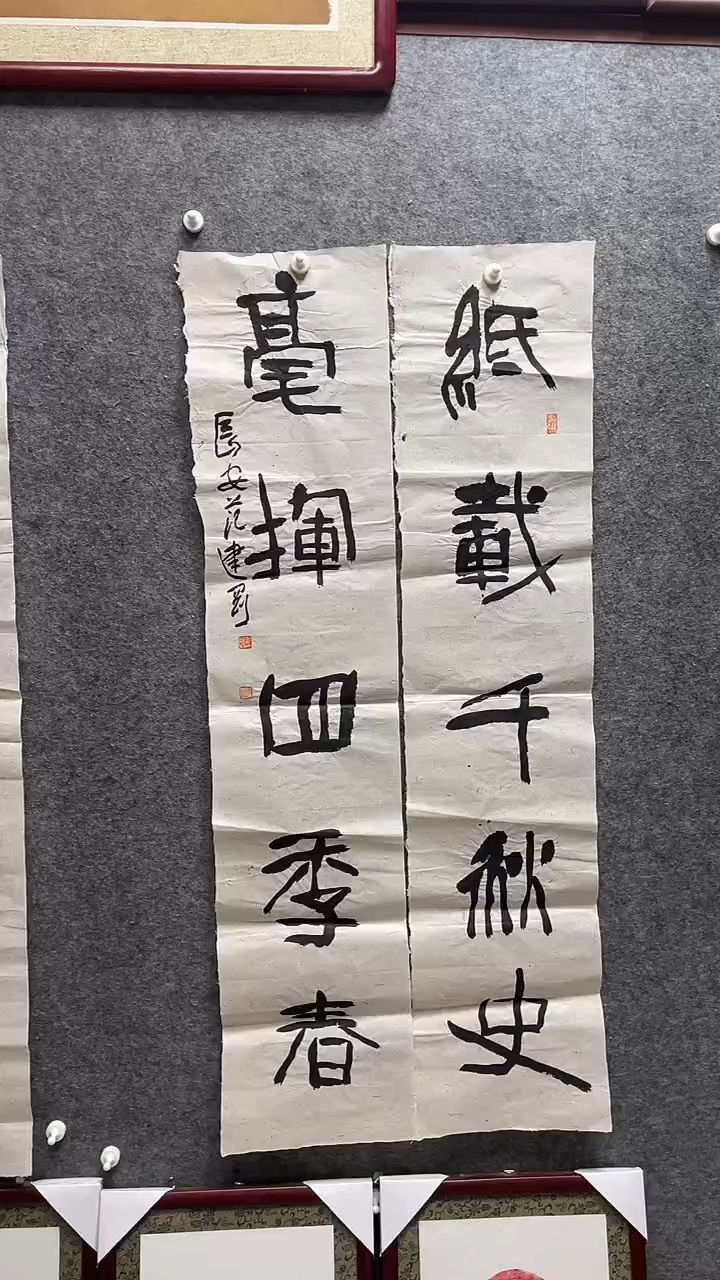 紙載千秋史
毫揮四季春
長安范建